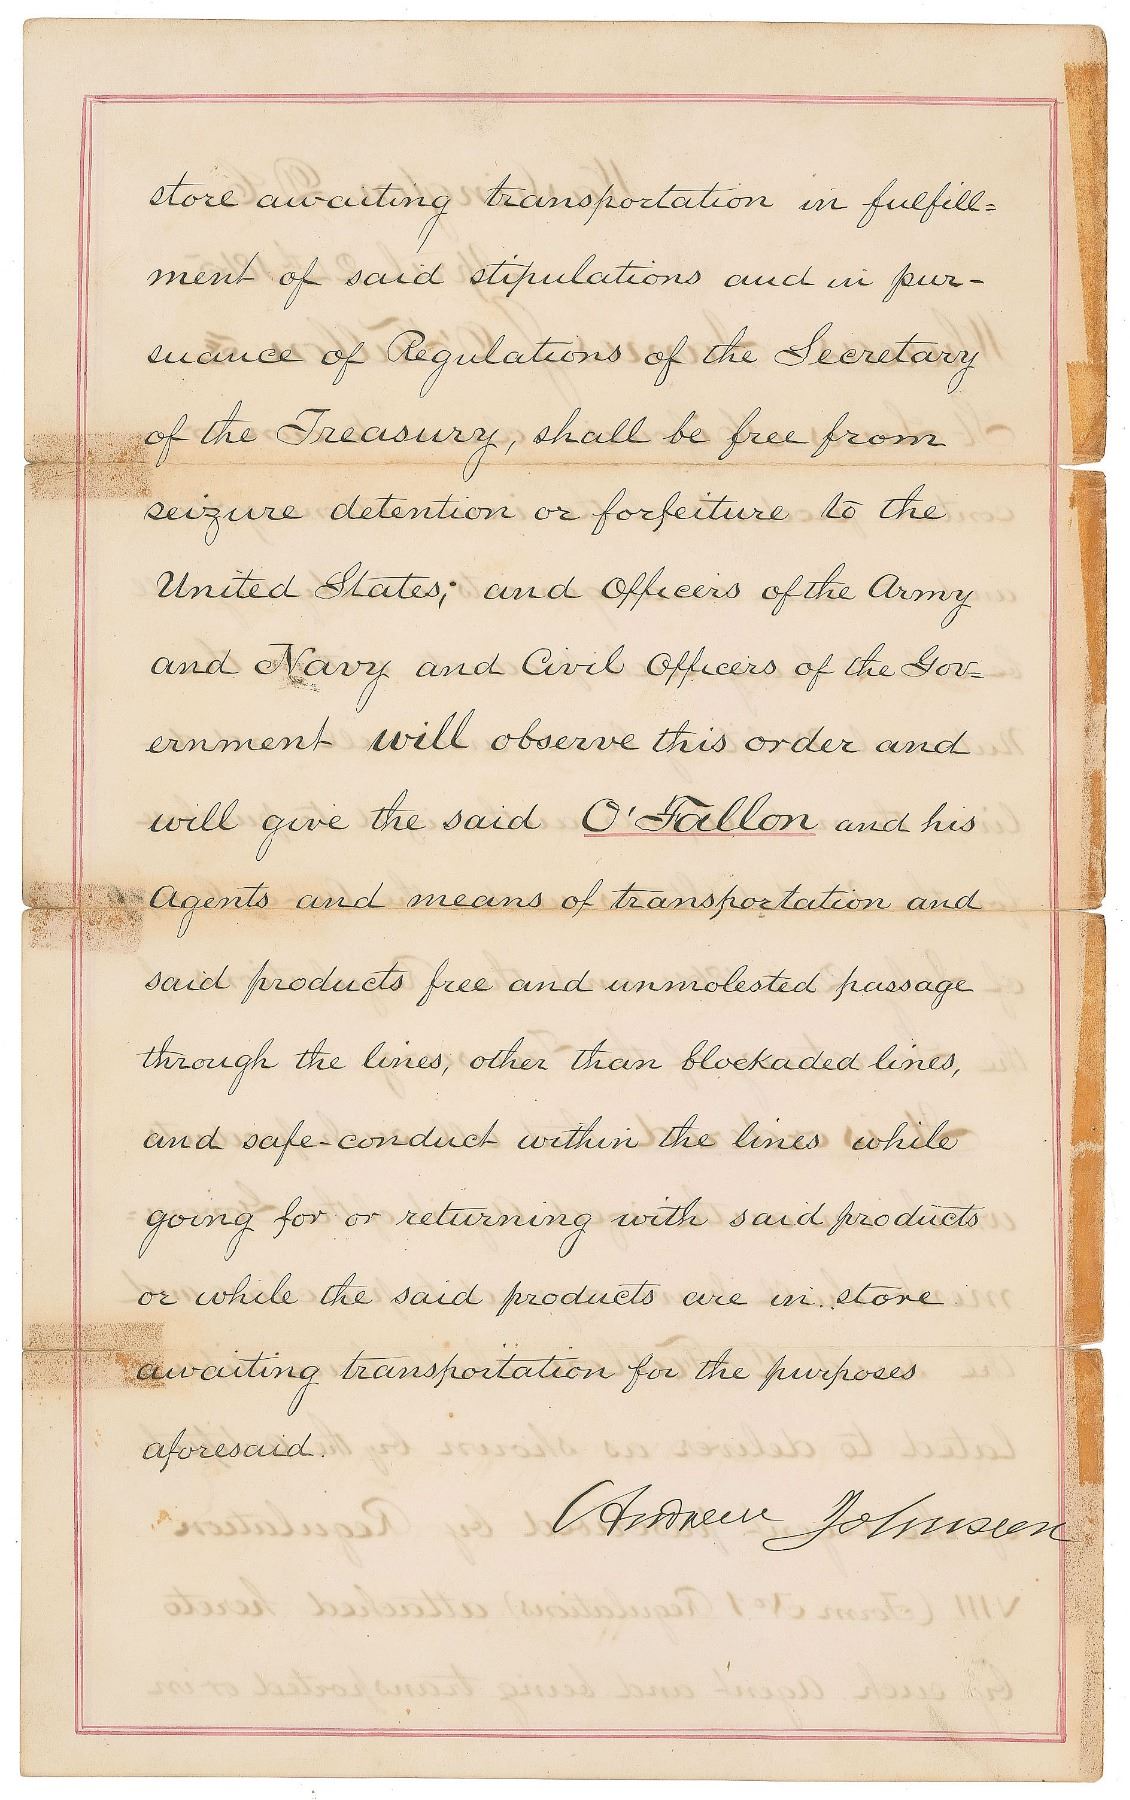 store awaiting transportation in fulfill=
ment of said stipulations and in pur-
suance of Regulations of the Secretary
of the Treasury, shall be free from
seizure detention or forfeiture to the
United States; and Officers of the Army
and Navy and Civil Officers of the Gov=
ernment will observe this order and
will give the said O'Fallon and his
Agents and means of transportation and
said products free and unmolested passage
through the lines, other than blockaded lines,
and safe-conduct within the lines while
going for or returning with said products
or while the said products are in store
awaiting transportation for the purposes
aforesaid.
Andrew Johnson